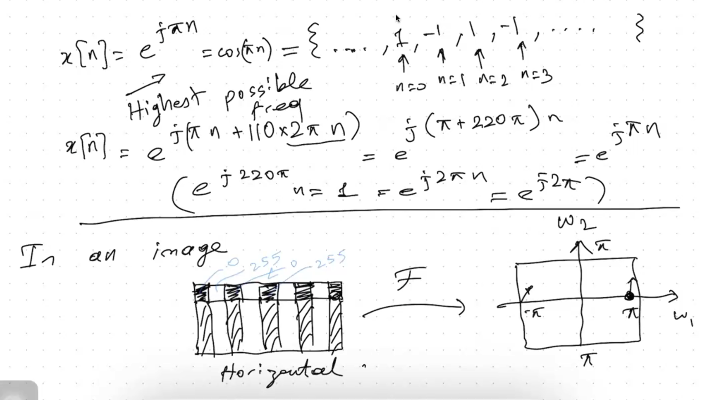 x[n] = e^{jπn} = cos(πn) = { ...., 1, -1, 1, -1, .... }
n=0 n=1 n=2 n=3
Highest possible
freq
x[n] = e^{j(πn + 110×2πn)} = e^{j(π+220π)n} = e^{jπn}
(e^{j220πn} = 1 = e^{j2πn} = e^{j2π})
In an image
0 255 0 255
F
Horizontal
ω2
π
-π π ω1
π